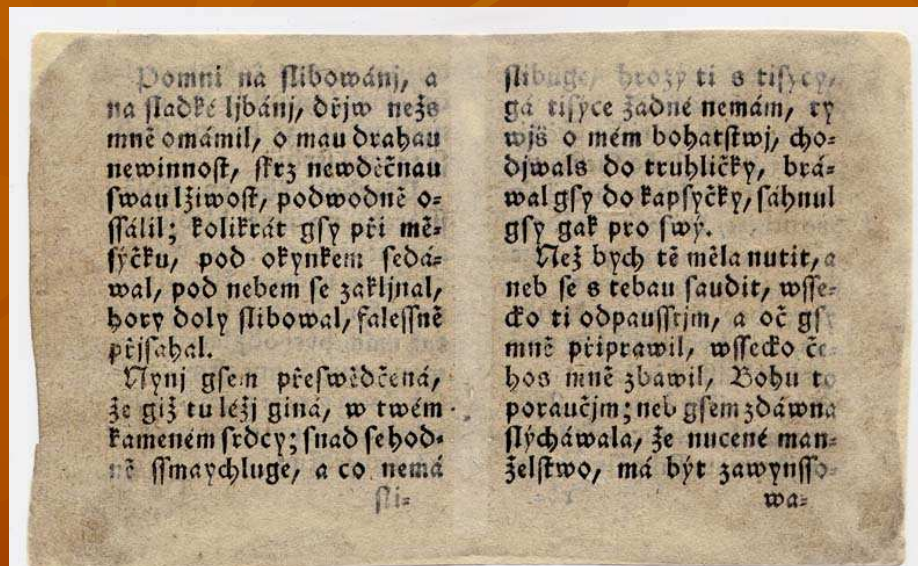 Pomni na slibowánj, a
na sladké ljbánj, dřjw nežs
mně omámil, o mau drahau
newinnost, skrz newděčnau
swau lžiwost, podwodně o=
ssálil; kolikrát gsy při mě=
sýčku, pod okýnkem sedá=
wal, pod nebem se zakljnal,
hory doly slibowal, falessně
přjsahal.
Nynj gsem přeswědčená,
že giž tu léžj giná, w twém
kameném srdcy; snad se hod=
ně ssmaychluge, a co nemá
sli=
slibuge, hrozý ti s tisýcy,
gá tisýce žádné nemám, ty
wjš o mém bohatstwj, cho=
djwals do truhličky, brá=
wal gsy do kapsyčky, sáhnul
gsy gak pro swý.
Než bych tě měla nutit, a
neb se s tebau saudit, wsse=
cko ti odpausstjm, a oč gsy
mně připrawil, wssecko če=
hos mně zbáwil, Bohu to
poraučjm; neb gsem zdáwna
slýcháwala, že nucené man=
želstwo, má být zawynsso=
wa=